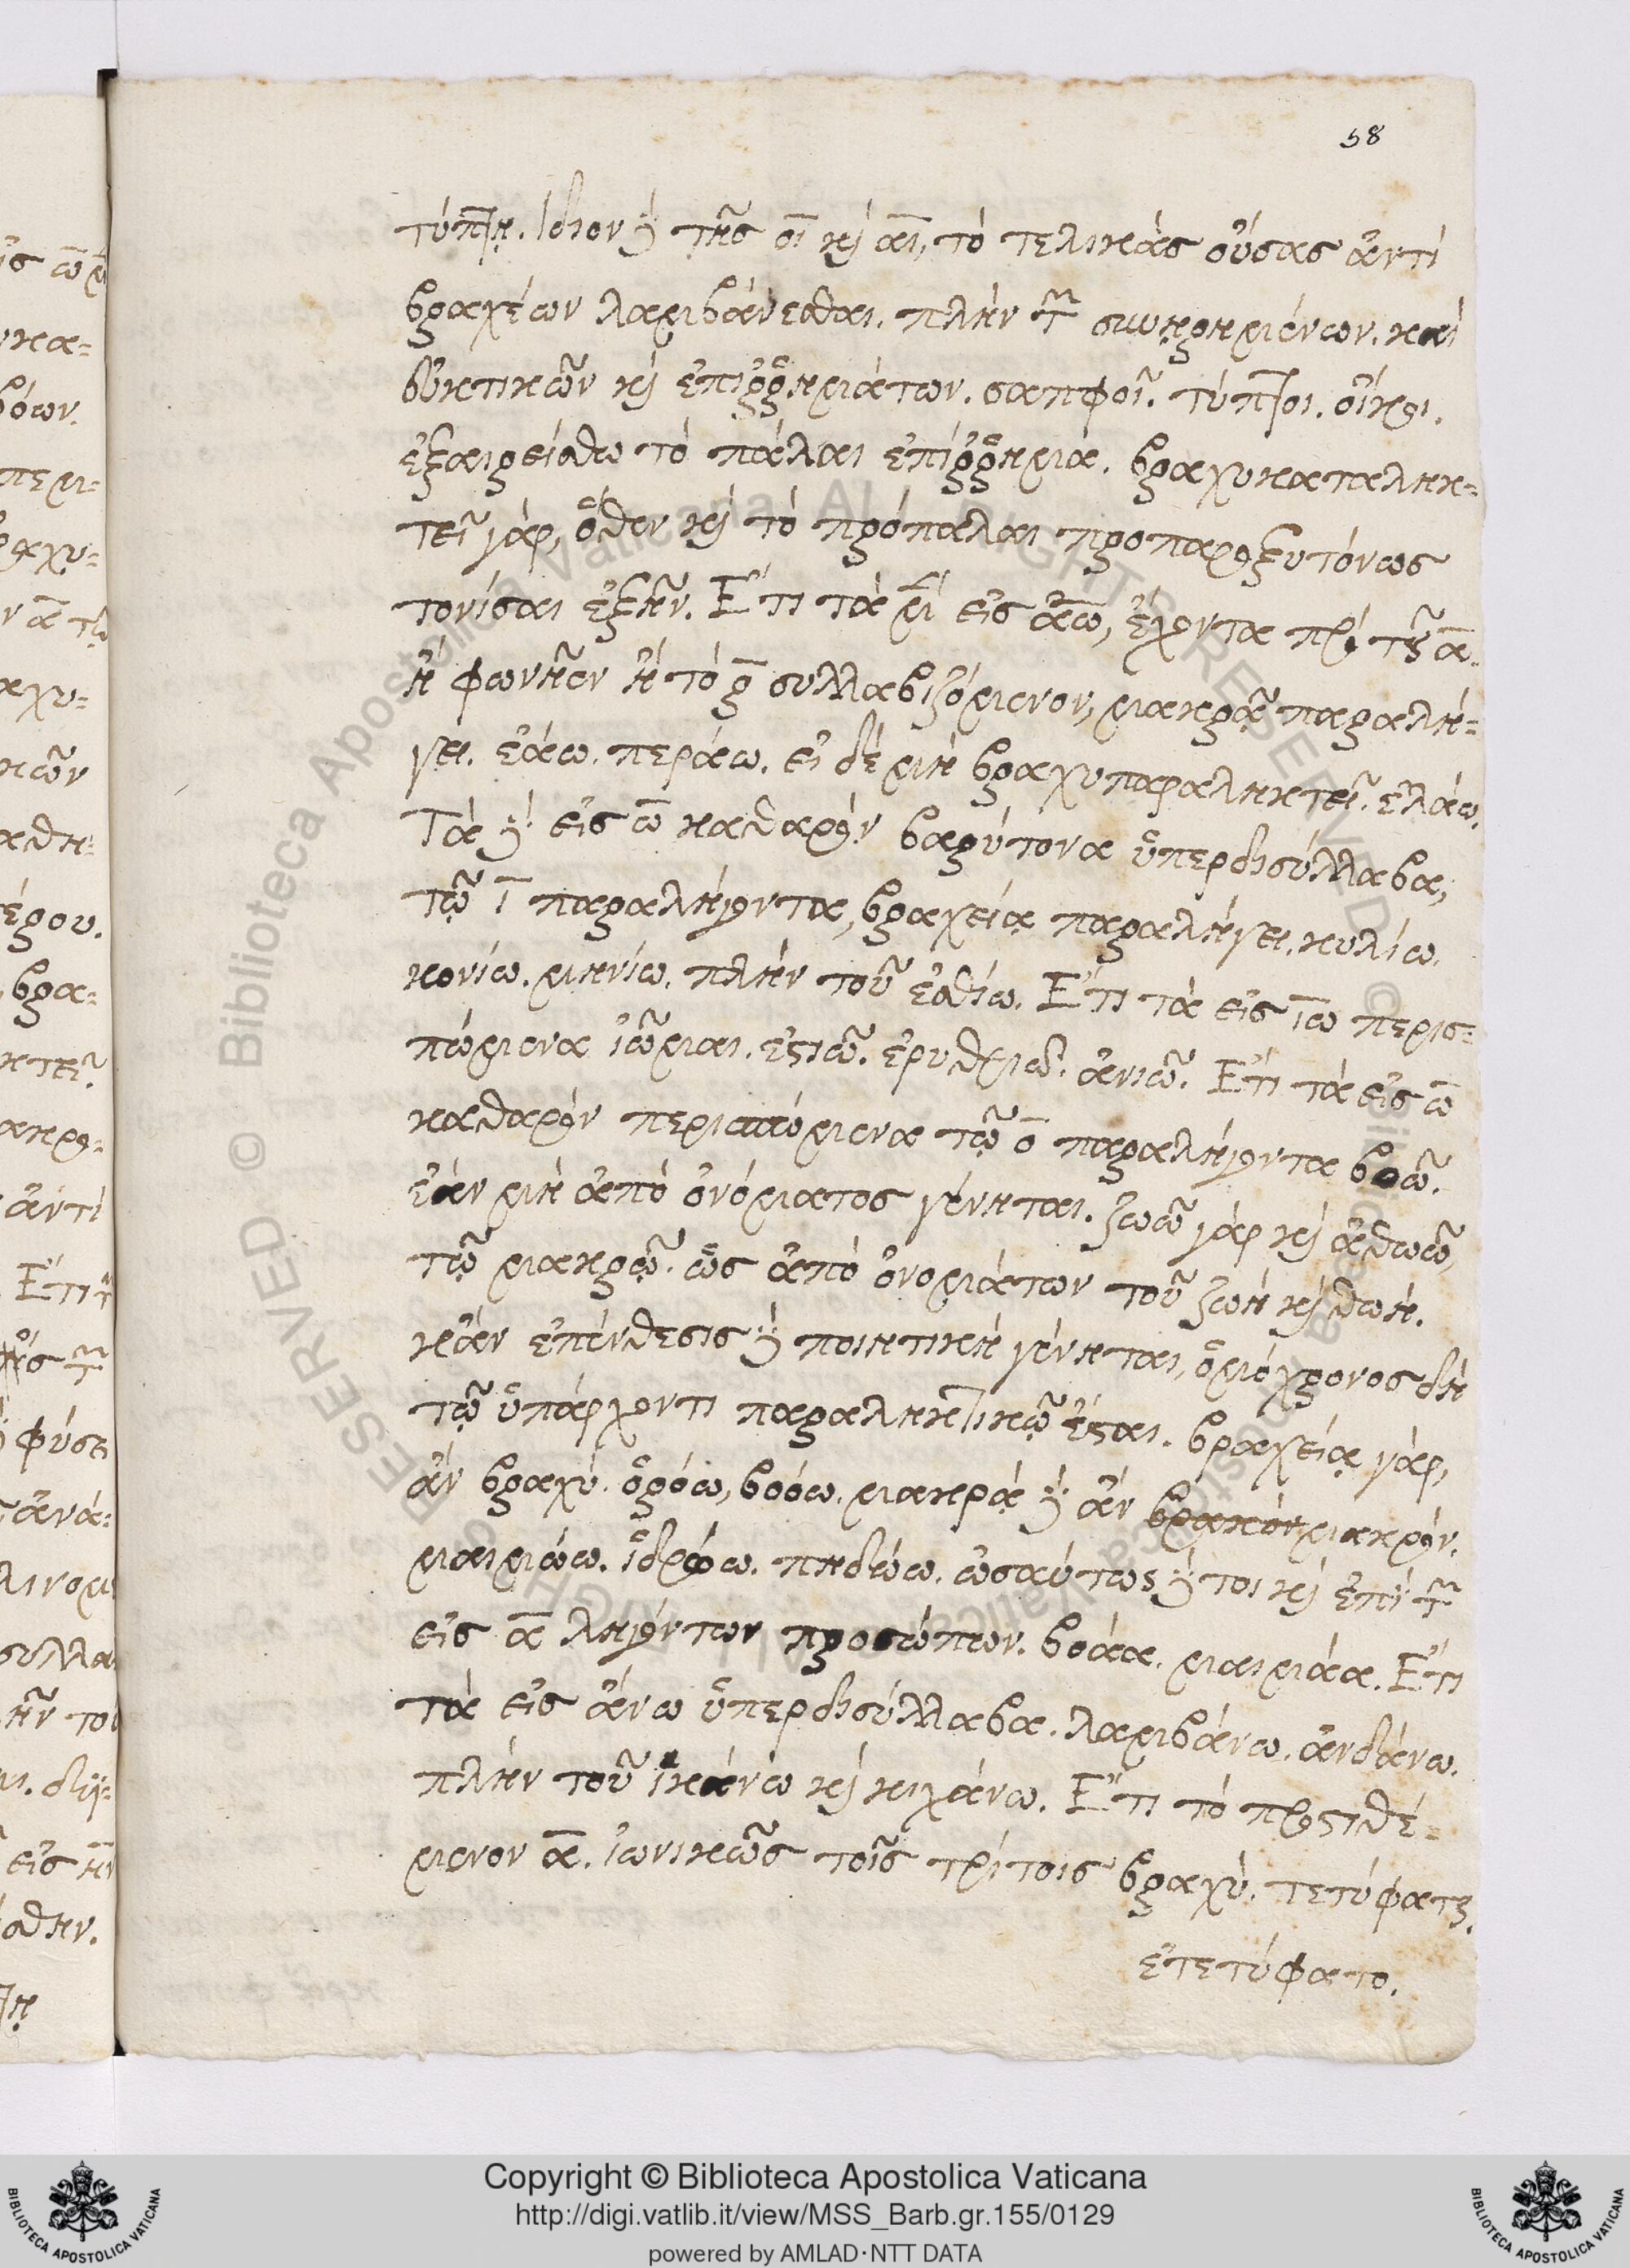 58
τύπτῃ. ἴδιον δὲ τῆς οι καὶ αι, τὸ τελικὰς οὔσας ἀντὶ
βραχέων λαμβάνεσθαι. πλὴν τῶν συνῃρημένων. καὶ
εὐκτικῶν καὶ ἐπιῤῥημάτων. σαπφοῖ. τύπτοι. οἴκοι.
ἐξαιρείσθω τὸ πάλαι ἐπίῤῥημα. βραχυκαταληκ-
τεῖ γάρ, ὅθεν καὶ τὸ πρόπαλαι προπαροξυτόνως
τονίσαι ἐξῆν. Ἔτι τὰ εἰς άω, ἔχοντα πρὸ τοῦ α.
ἢ φωνῆεν ἢ τὸ ρ συλλαβιζόμενον, μακρᾷ παραλή-
γει. ἐάω. περάω. εἰ δὲ μὴ βραχυπαραληκτεῖ. ἐλάω.
Τὰ δὲ εἰς ω καθαρὸν βαρύτονα ὑπερδισύλλαβα,
τῷ ι παραλήγοντα, βραχείᾳ παραλήγει. κυλίω.
κονίω. μηνίω. πλὴν τοῦ ἐσθίω. Ἔτι τὰ εἰς ιω περισ-
πώμενα ἰῶμαι. ἑστιῶ. ἐρυθριῶ. ἀνιῶ. Ἔτι τὰ εἰς ω
καθαρὸν περισπώμενα τῷ ο παραλήγοντα βοῶ.
ἐὰν μὴ ἀπὸ ὀνόματος γένηται. ζωῶ γὰρ καὶ ἀθωῶ,
τῷ μακρῷ. ὡς ἀπὸ ὀνομάτων τοῦ ζωὴ καὶ θωή.
κἂν ἐπένθεσις δὲ ποιητικὴ γένηται, ὁμόχρονος δὴ
τῷ ὑπάρχοντι παραληκτικῷ ἔσται. βραχείᾳ γάρ,
ἂν βραχύ. ὁρόω, βοόω. μακρᾷ δὲ ἂν μακρόν.
μαιμώω. ἱδρώω. πηδώω. ὡσαύτως δέ τοι καὶ ἐπὶ τῶν
εἰς α ληγόντων προσώπων. βοάα. μαιμάα. Ἔτι
τὰ εἰς άνω ὑπερδισύλλαβα. λαμβάνω. ἁνδάνω.
πλὴν τοῦ ἱκάνω καὶ κιχάνω. Ἔτι τὸ προστιθέ-
μενον α. ἰωνικῶς τοῖς τρίτοις βραχύ. τετύφαται.
ἐτετύφατο.
Copyright © Biblioteca Apostolica Vaticana
http://digi.vatlib.it/view/MSS_Barb.gr.155/0129
powered by AMLAD·NTT DATA